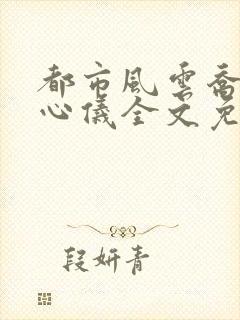 都市風雲喬
心儀全文免
段妍青